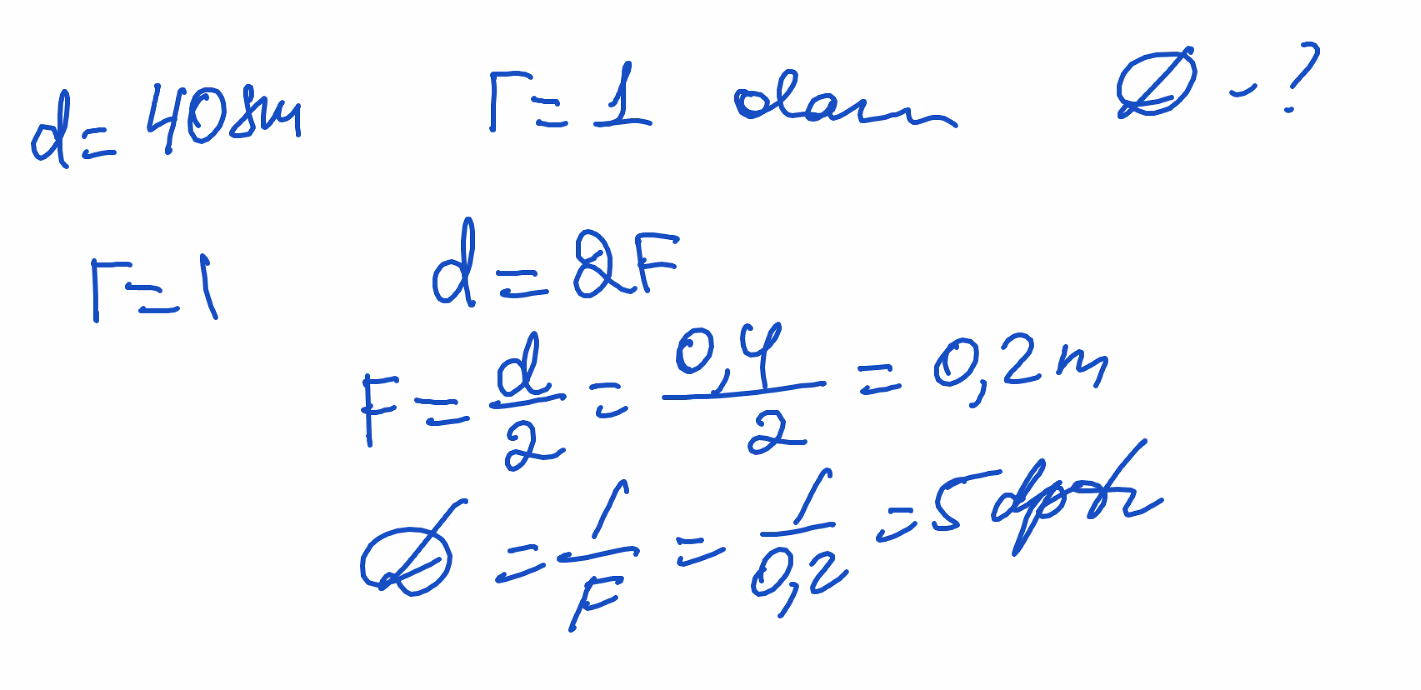 d = 40 sm Γ = 1 Ø - ?
Γ = 1 d = 2F
F = d/2 = 0,4/2 = 0,2 m
Ø = 1/F = 1/0,2 = 5 dptr